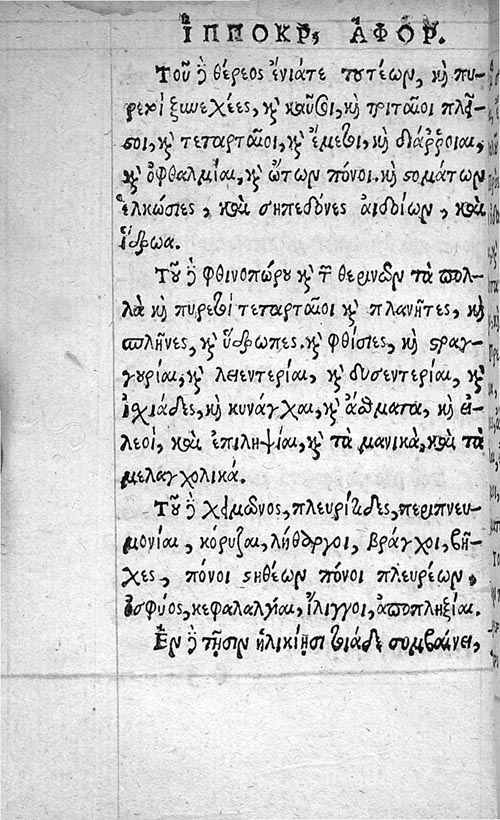 ἹΠΠΟΚΡ, ἈΦΟΡ.
Τοῦ δὲ θέρεος ἔνιάτε τουτέων, καὶ πυ-
ρετοὶ ξυνεχέες, καὶ καῦσοι, καὶ τριταῖοι πυρε-
τοι, καὶ τεταρταῖοι, καὶ ἔμετοι, καὶ διάῤῥοιαι,
καὶ ὀφθαλμίαι, καὶ ὤτων πόνοι. καὶ στομάτων
ἑλκώσιες, καὶ σηπεδόνες αἰδοίων, καὶ
ἵδρωα.
Τοῦ δὲ φθινοπώρου καὶ τῶν θερινῶν τὰ πολ-
λὰ καὶ πυρετοὶ τεταρταῖοι καὶ πλανῆτες, καὶ
σπλῆνες, καὶ ὕδρωπες. καὶ φθίσιες, καὶ στραγ-
γουρίαι, καὶ λειεντερίαι, καὶ δυσεντερίαι, καὶ
ἰσχιάδες, καὶ κυνάγχαι, καὶ ἄσθματα, καὶ εἰ-
λεοὶ, καὶ ἐπιληψίαι, καὶ τὰ μανικὰ, καὶ τὰ
μελαγχολικά.
Τοῦ δὲ χειμῶνος, πλευρίτιδες, περιπνευ-
μονίαι, κόρυζαι, λήθαργοι, βράγχοι, βῆ-
χες, πόνοι στηθέων πόνοι πλευρέων,
ὀσφύος, κεφαλαλγίαι, ἴλιγγοι, ἀποπληξίαι.
Ἐν δὲ τῇσιν ἡλικίῃσι τοιάδε συμβαίνει,